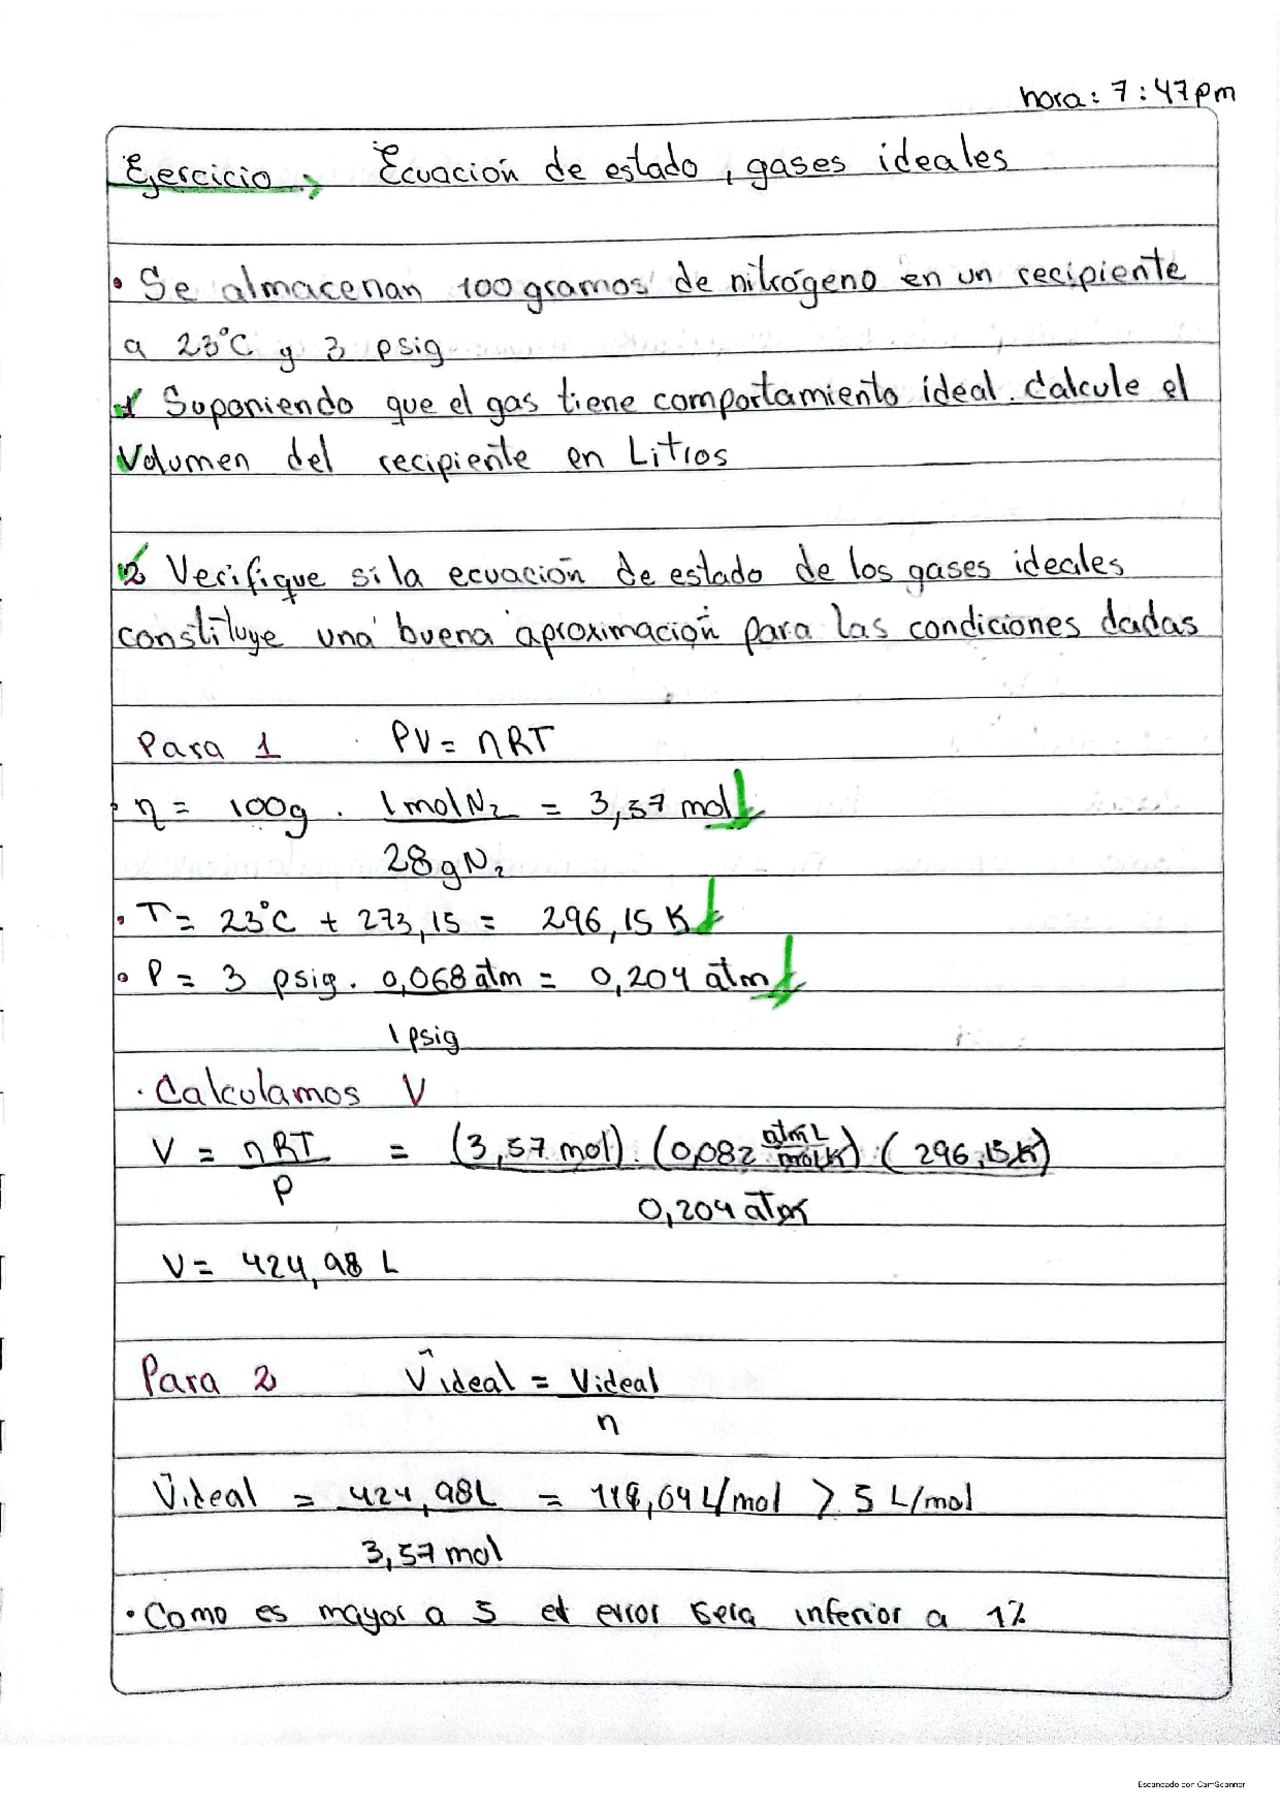 hora: 7:47pm
Ejercicio: Ecuación de estado, gases ideales
• Se almacenan 100 gramos de nitrógeno en un recipiente
a 23°C y 3 psig
1 Suponiendo que el gas tiene comportamiento ideal. Calcule el
Volumen del recipiente en Litros
2 Verifique si la ecuación de estado de los gases ideales
constituye una buena aproximación para las condiciones dadas
Para 1 PV = nRT
• n = 100g . 1 mol N₂ = 3,57 mol
28g N₂
• T = 23°C + 273,15 = 296,15 K
• P = 3 psig . 0,068 atm = 0,204 atm
1 psig
• Calculamos V
V = nRT = (3,57 mol) . (0,082 atm L / mol K) (296,15 K)
P 0,204 atm
V = 424,98 L
Para 2 V̂ ideal = Videal
n
V̂ideal = 424,98L = 119,04 L/mol > 5 L/mol
3,57 mol
• Como es mayor a 5 el error sera inferior a 1%
Escaneado con CamScanner